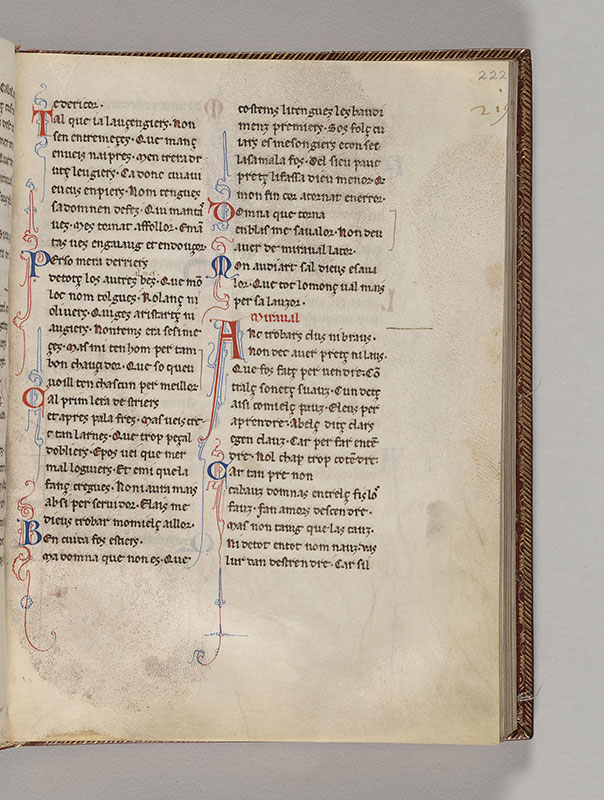 222
215
e dericor.
Tal que ia lauçengiers. Non
sen entremeçes. Que manç
enueis nai pres. Men trera dr
utç leugiers. Ca donc cuiaui
eucus enpiers. Nom tengues
sa domnen defez. Qui
ues. Mes tornat affollor. Emã
tas ues engauaug et endouzor.
Perso mera derriers
detotç los autres beç. Que mõ
loc nom tolgues. Rolanç ni
oliuers. Quiges aristartç ni
augiers. Nontems era sesime
çes. Mas mi ten hom per tam
bon chauçidor. Que so queu
uoill ten chascun per meillor.
Cal prim lera destriers
et apres pala fres. Mas ueis
tan larnes. Que trop peçal
dobliers. Epos uei que mer
mal loguiers. Et emi quela
fanç cregues. Noni aura mais
absi per seruidor. Elais me
dieus trobar momielç aillor.
Ben cuida fos estiers.
Ma domna que non es. Que
costems li tengues les baudor
menz premiers. Sos folç cu
iars es mesongiers econ sel
lasamala fos. Del sieu pauc
pretç lifassa dieu menor. Qe
mon fin cor atornat enerror.
Domna que torna
en blasme sa ualor. Non deu
auer de miraual lator.
Mon audiart sal dieus esaua
lor. Que tot lomonç ual mais
per sa lauzor.
Miraual
Anc trobars clus ni braus.
Non dec auer pretç ni laus.
Que fos fatç per uendre. Cõ
tralç sonetç suauz. Cun detç
aisi comielç pauz. Eleus per
aprendre. Abelç ditç clars
egen clauz. Car per far entẽ
dre. Nol chap trop cotẽdre.
Car tan pre non
cabauz domnas entrelç fiçlo
fauz. fan amors descendre.
Mas non taing que las cauz.
Ni detot entot nom nauz. Vas
lur dan destrendre. Car sil